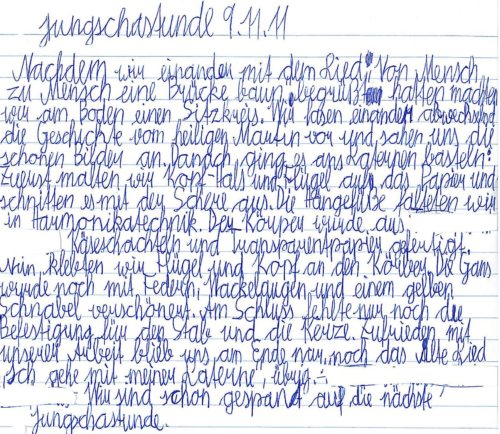 Jungschastunde 9.11.11
Nachdem wir einander mit dem Lied "Von Mensch
zu Mensch eine Brücke baun" begrüßt hatten machten
wir am Boden einen Sitzkreis. Wir lasen einander abwechselnd
die Geschichte vom heiligen Martin vor und sahen uns die
schönen Bilder an. Danach ging es ans Laternen basteln:
Zuerst malten wir Kopf-Hals und Flügel aufs das Papier und
schnitten es mit der Schere aus. Die Hängefüße falteten wir
in Harmonikatechnik. Der Körper wurde aus
Käseschachteln und Transparentpapier gefertigt.
Nun klebten wir Flügel und Kopf an den Körper. Die Gans
wurde noch mit Federn, Wackelaugen und einem gelben
Schnabel verschönert. Am Schluss fehlte nur noch die
Befestigung für den Stab und die Kerze. Zufrieden mit
unserer Arbeit blieb uns am Ende nur noch das Alte Lied
"Ich gehe mit meiner Laterne" übrig.
Wir sind schon gespannt auf die nächste
Jungschastunde.